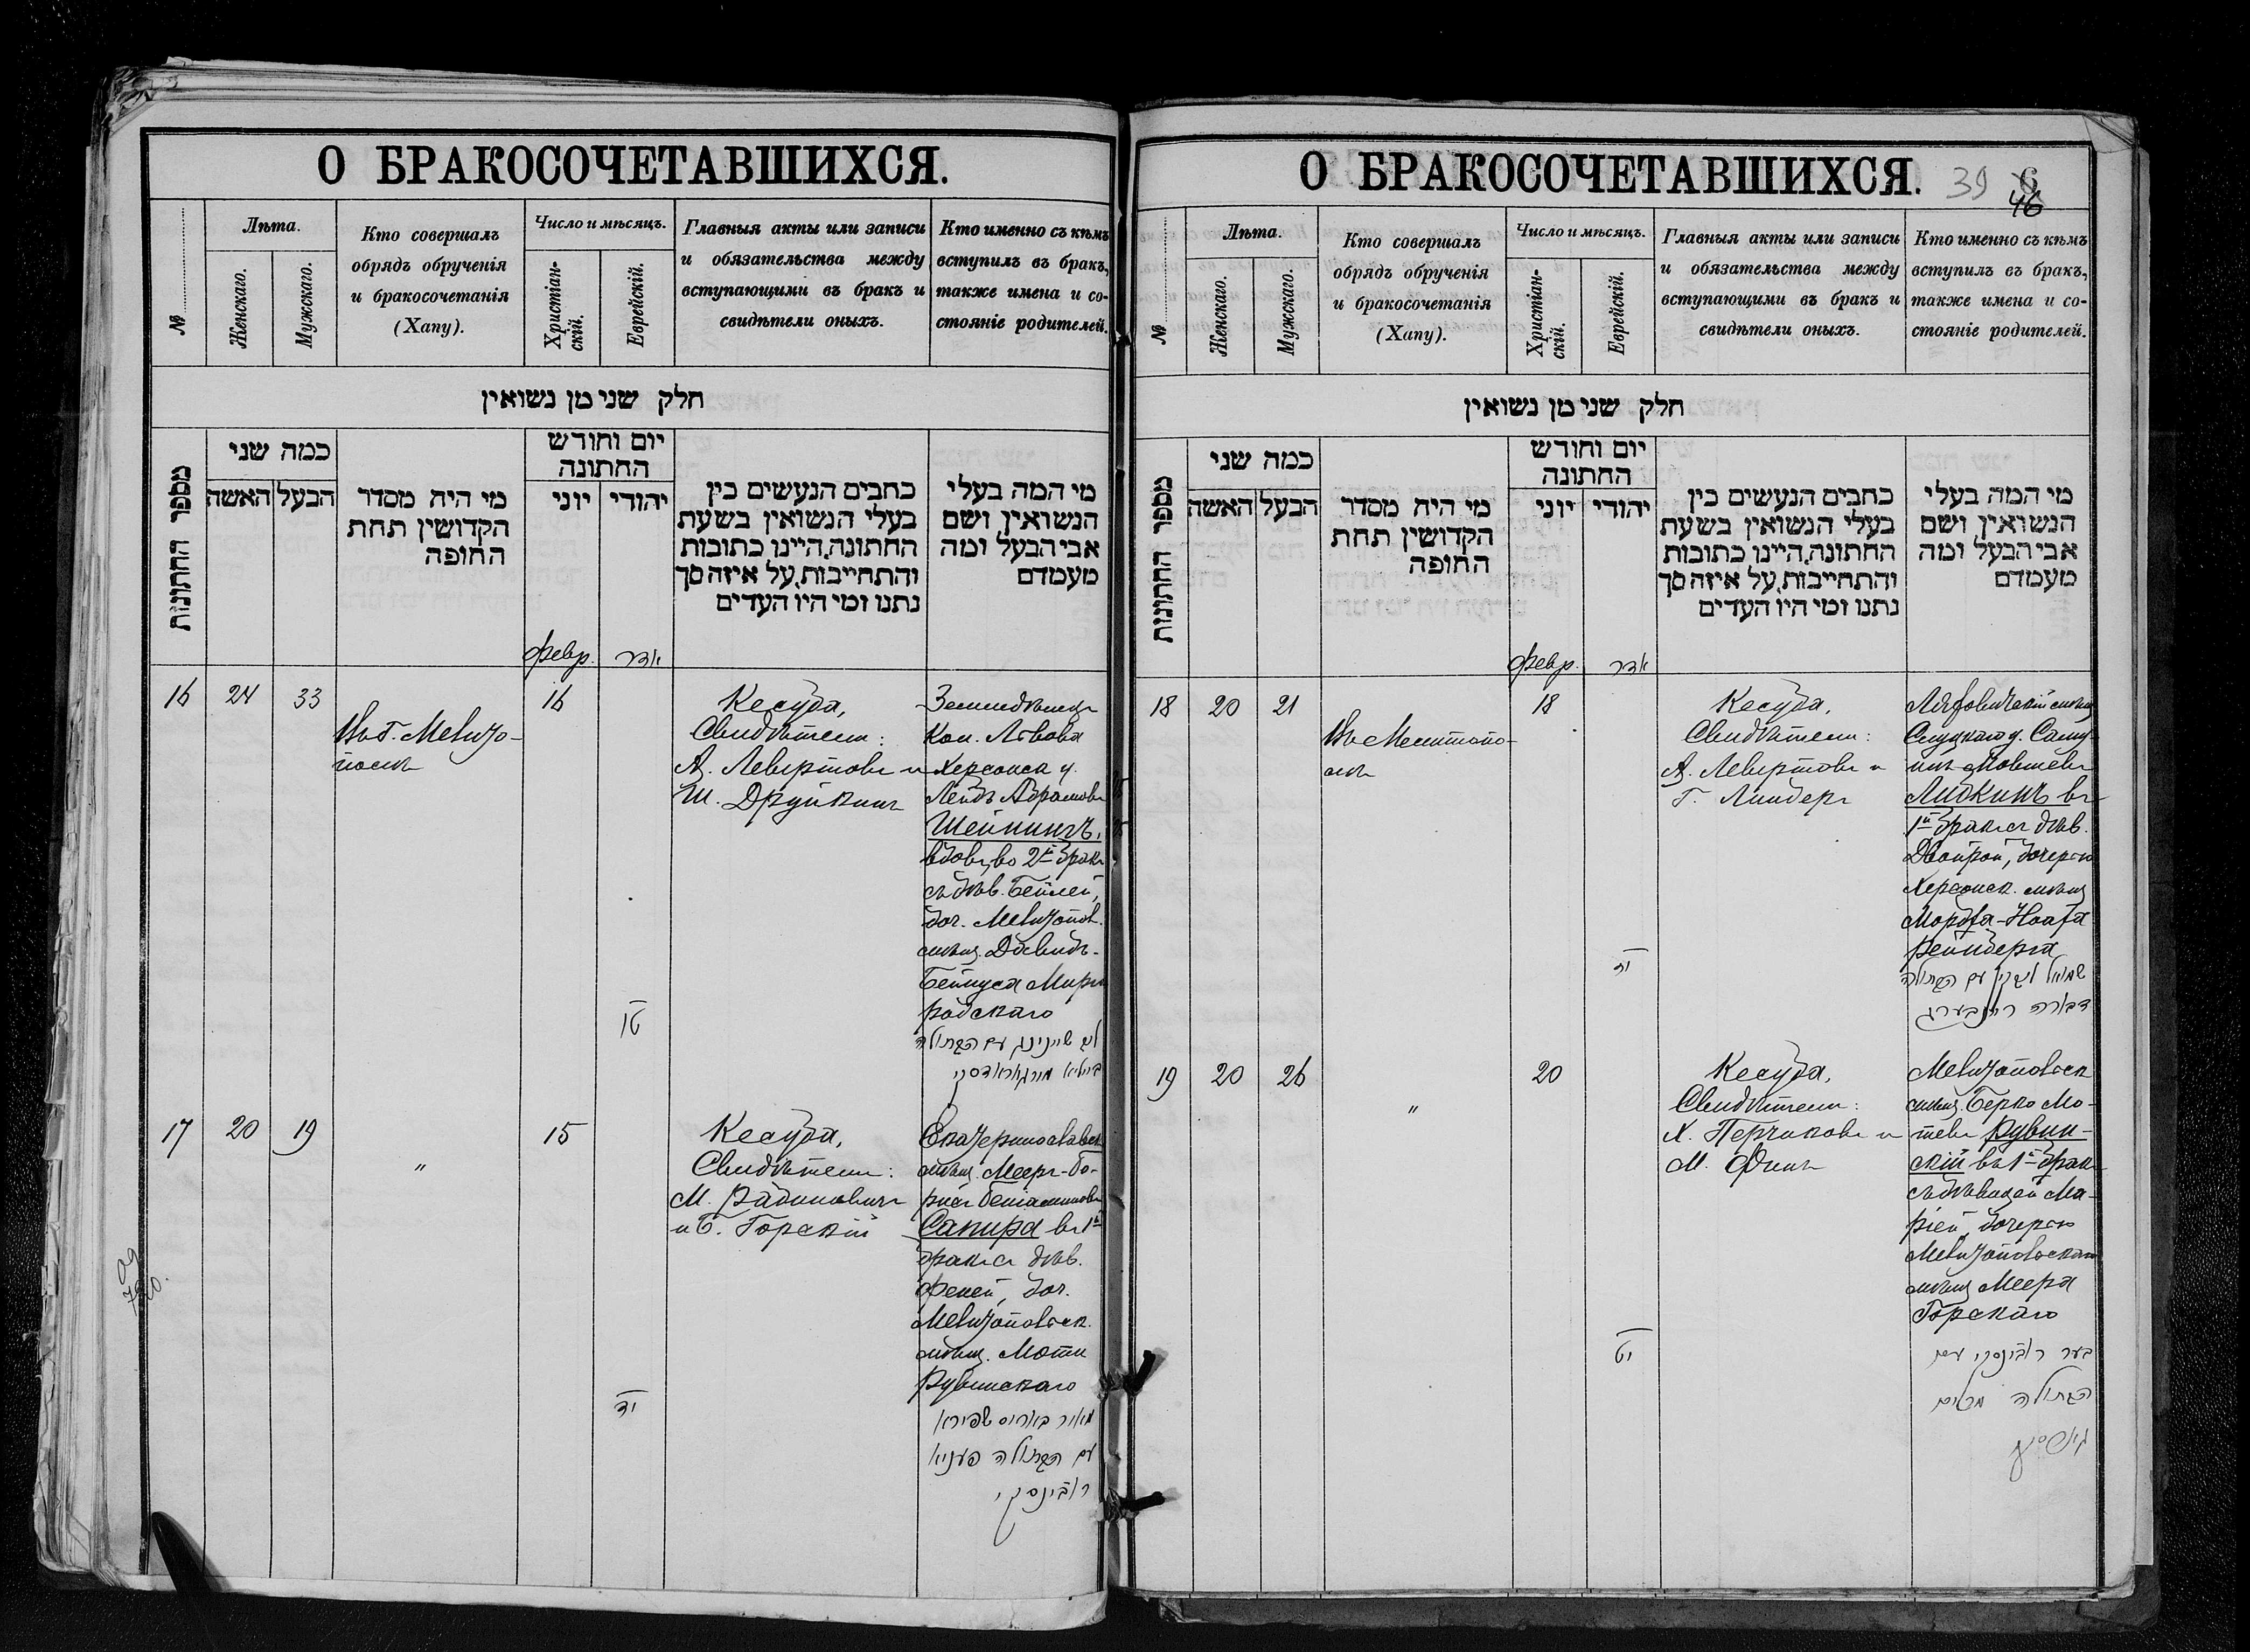 О БРАКОСОЧЕТАВШИХСЯ.
№
Лѣта.
Женскаго.
Мужскаго.
Кто совершалъ
обрядъ обрученія
и бракосочетанія
(Хапу).
Число и мѣсяцъ.
Христіан-
скій.
Еврейскій.
Главныя акты или записи
и обязательства между
вступающими въ бракъ и
свидѣтели оныхъ.
Кто именно съ кѣмъ
вступилъ въ бракъ,
также имена и со-
стояніе родителей.
חלק שני מן נשואין
מספר החתונות
כמה שני
האשה
הבעל
מי היה מסדר
הקדושין תחת
החופה
יום וחודש
החתונה
יוני
יהודי
כתבים הנעשים בין
בעלי הנשואין בשעת
החתונה, היינו כתובות
והתחייבות, על איזה סך
נתנו ומי היו העדים
מי המה בעלי
הנשואין ושם
אבי הבעל ומה
מעמדם
февр.
אדר
16
24
33
Въ г. Мелито-
полѣ
16
טז
Кесуба,
Свидѣтели:
А. Левертовъ и
Ш. Друйкинъ
Земледѣлецъ
Кол. Львова
Херсонск у.
Лейбъ Абрамовъ
Шейнингъ,
вдовъ, во 2й бракъ
съ дѣв. Бейлей,
доч. Мелитопол.
мѣщ. Давидъ-
Бейнуса Мирго
родскаго
ליב שיינינג עם הבתולה
ביילא מירגאראדסקי
17
20
19
"
15
יד
Кесуба,
Свидѣтели:
М. Рабиновичъ
и Б. Горскій
Екатеринославск
мѣщ. Мееръ-Бо-
рисъ Беніаминовъ
Сапира въ 1й
бракъ съ дѣв.
Феней, доч.
Мелитопольск.
мѣщ. Моти
Рувинскаго
מאיר באריס שפירא
עם הבתולה פעניא
רובינסקי
О БРАКОСОЧЕТАВШИХСЯ.
39
46
№
Лѣта.
Женскаго.
Мужскаго.
Кто совершалъ
обрядъ обрученія
и бракосочетанія
(Хапу).
Число и мѣсяцъ.
Христіан-
скій.
Еврейскій.
Главныя акты или записи
и обязательства между
вступающими въ бракъ и
свидѣтели оныхъ.
Кто именно съ кѣмъ
вступилъ въ бракъ,
также имена и со-
стояніе родителей.
חלק שני מן נשואין
מספר החתונות
כמה שני
האשה
הבעל
מי היה מסדר
הקדושין תחת
החופה
יום וחודש
החתונה
יוני
יהודי
כתבים הנעשים בין
בעלי הנשואין בשעת
החתונה, היינו כתובות
והתחייבות, על איזה סך
נתנו ומי היו העדים
מי המה בעלי
הנשואין ושם
אבי הבעל ומה
מעמדם
февр.
אדר
18
20
21
Въ Мелитопо-
лѣ
18
Кесуба,
Свидѣтели:
А. Левертовъ и
Г. Линдеръ
Ляховичскій мѣщ
Слуцкаго у. Саму-
илъ Мовшевъ
Лидкинъ въ
1й бракъ съ дѣв.
Двойрой, дочерью
Херсонск. мѣщ
Мордха-Ноаха
Рейнберга
שמואל לידקין עם הבתולה
דבורה ריינבערג
19
20
26
"
20
יט
Кесуба,
Свидѣтели:
Х. Перчиковъ и
М. Финъ
Мелитопольск
мѣщ. Берко Мо-
тевъ Рувин-
скій въ 1й бракъ
съ дѣвицей Ма-
ріей, дочерью
Мелитопольскаго
мѣщ Меера
Горскаго
בער רובינסקי עם
הבתולה מרים